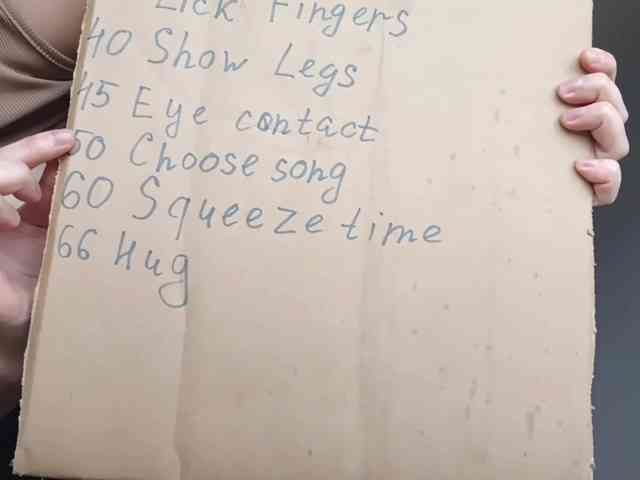 Lick Fingers
40 Show Legs
45 Eye contact
50 Choose song
60 Squeeze time
66 Hug